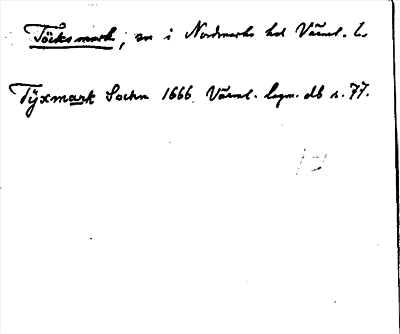 Töcksmark, sn i Nordmarks hd Värml. L.
Tÿxmark Sochn 1666. Värml. lagm. db s. 77.